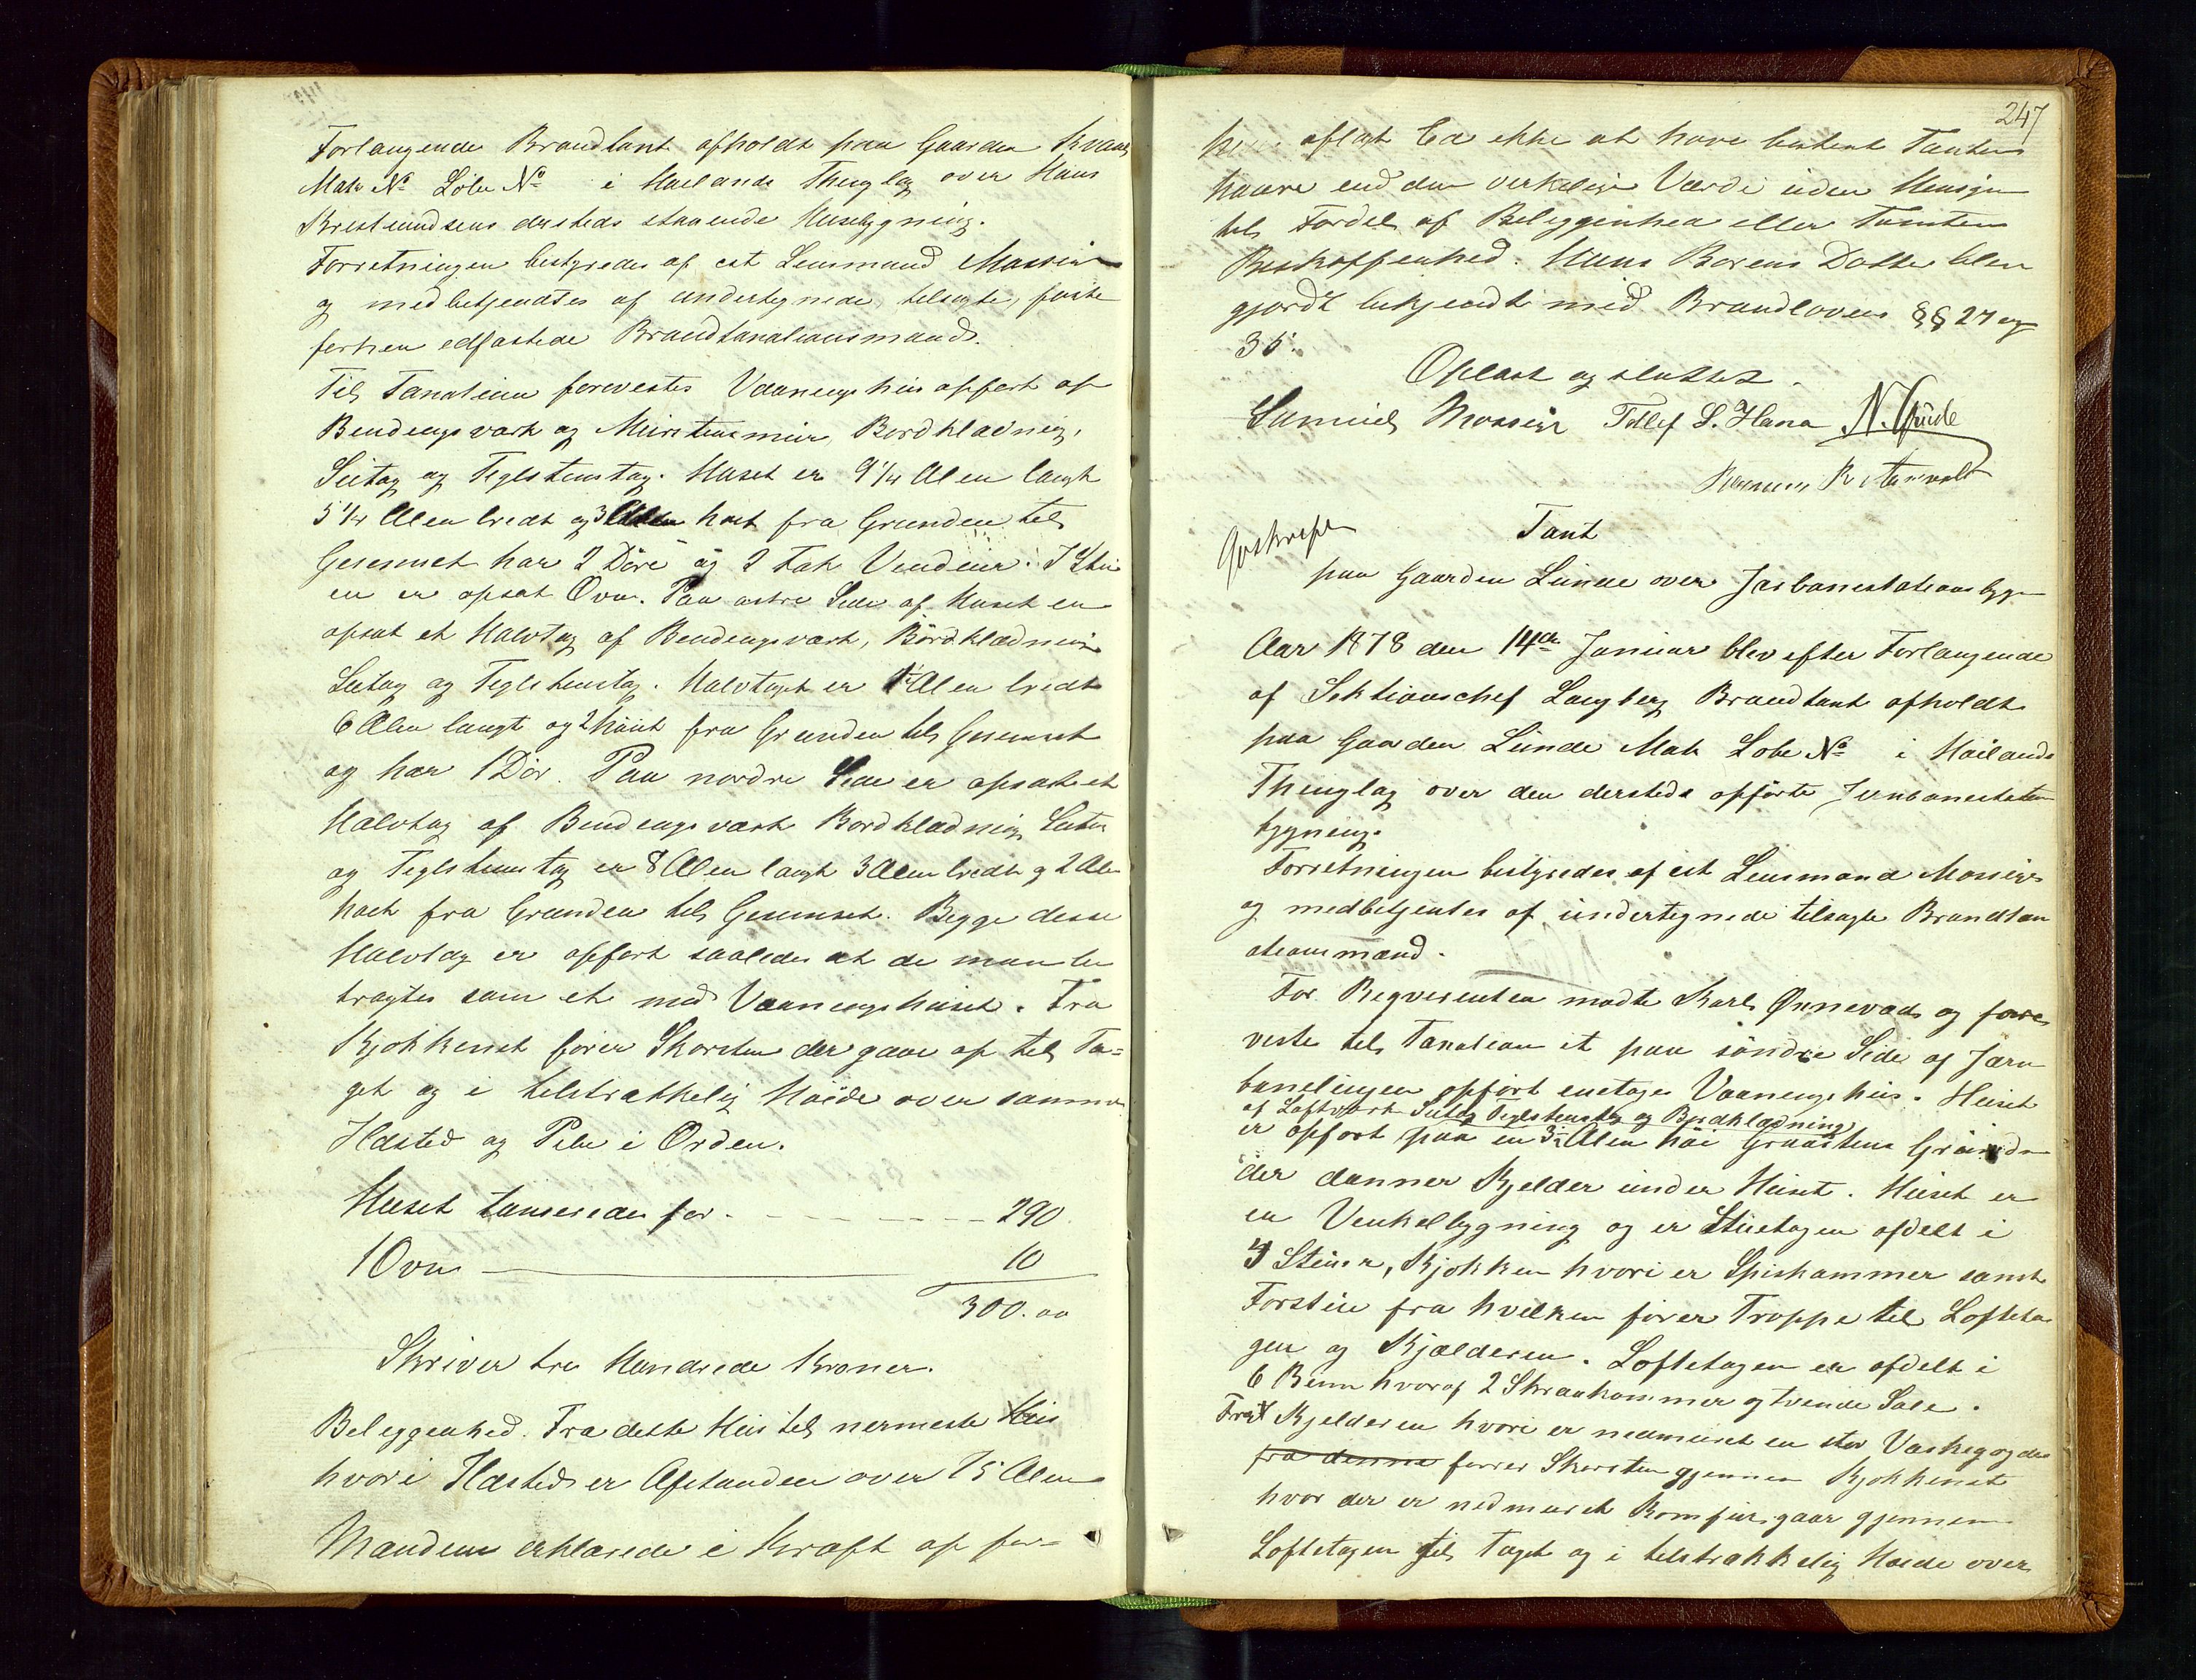 Forlangende Brandtaxt afholdt paa Gaarden
Matr No Løbe No i Haalands Thinglag over Hans
dersteds staaende Husebygning.
Forretningen bestyredes af cst Lensmand Mossige
og medbetjendtes af undertegnede tilsagte, faste
edfæstede Brandtaxationsmænd.
Til Taxation forevistes Vaaningshus opført af
Bendingsværk og Murstensmur, Bordklædning,
og Teglstenstag. Huset er 9 1/4 Alen langt
5 1/4 Alen bredt og 3 Alen høit fra Grunden til
Gesemset har 2 Døre og 2 Fak Venduer. I Stu
en er opsat Ovn. Paa østre Side af Huset er
opsat et Halvtag af Bendingsværk, Bordklædning
og Teglstenstag. Halvtaget er Alen bredt
6 Alen langt og 2 høit fra Grunden til Gesemset
og har 1 Dør. Paa nordre Side er opsat et
Halvtag af Bendingsværk Bordklædning
og Teglstenstag er 8 Alen langt 3 Alen bredt og 2 Alen
høit fra Grunden til Gesemset. Begge disse
Halvtag er opført saaledes at de man be
tragtes som et med Vaaningshuset. Fra
Kjøkkenet fører Skorsten der gaar op til Ta=
get og i tilstrækkelig Høide over samme
Ildsted og Pibe i Orden.
Huset taxeredes for - - - - - - 290
1 Ovn — 10
300.00
Skriver tre Hundrede Kroner.
Beleggenhed. Fra dette Hus til nermeste Hus
hvori Ildsted er Afstanden over 75 Alen
Manden erklærede i Kraft af for=
247
aflagt Ed ikke at have Taxten
høiere end den virkelige Værdi uden Hensyn
til Fordel af Beleggenhed eller Tomtens
Beskaffenhed. Hans Datter blev
gjordt bekjendt med Brandlovens §§ 27 og
35.
Oplæst og sluttet.
Samuel Mossige Tollef S. Hana N. Gude
Rasmus R
Gjenskrift
Taxt
paa Gaarden Lunde over Jernbanestationsbygn
Aar 1878 den 14de Januar blev efter Forlangende
af Sektionschef Langberg Brandtaxt afholdt
paa Gaarden Lunde Matr Løbe No i Haalands
Thinglag over den dersteds opførte Jernbanestation
bygning.
Forretningen bestyredes af cst Lensmand Mossige
og medbetjentes af undertegnede tilsagte Brandtax
ationsmænd.
For Reqvirenten mødte Karl Ønnevad og fore
viste til Taxation et paa søndre Side af Jærn
banelinjen opført enetages Vaaningshus. Huset
af Loftværk Teglstenstag og Bordklædning
er opført paa en 3½ Alen høi Graastens Grund
der danner Kjelder under Huset. Huset er
en Venkelbygning og er Stuetagen afdelt i
4 Stuer, Kjøkken hvori er Spiskammer samt
Forstue fra hvilken fører Trappe til Loftets
gen og Kjælderen. Loftetagen er afdelt i
6 Rum hvoraf 2 Skraakammer og tvende Sale.
Fra Kjelderen hvori er nedmuret en stor
fra denne fører Skorsten gjennem Kjøkkenet
hvor der er nedmuret Komfur, gaar gjennem
Loftetagen til Taget og i tilstrækkelig Høide over